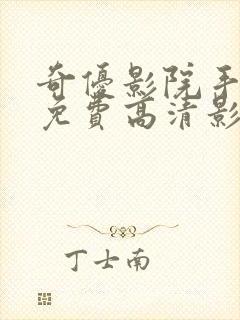 奇優影院手
免費高清影
丁士南